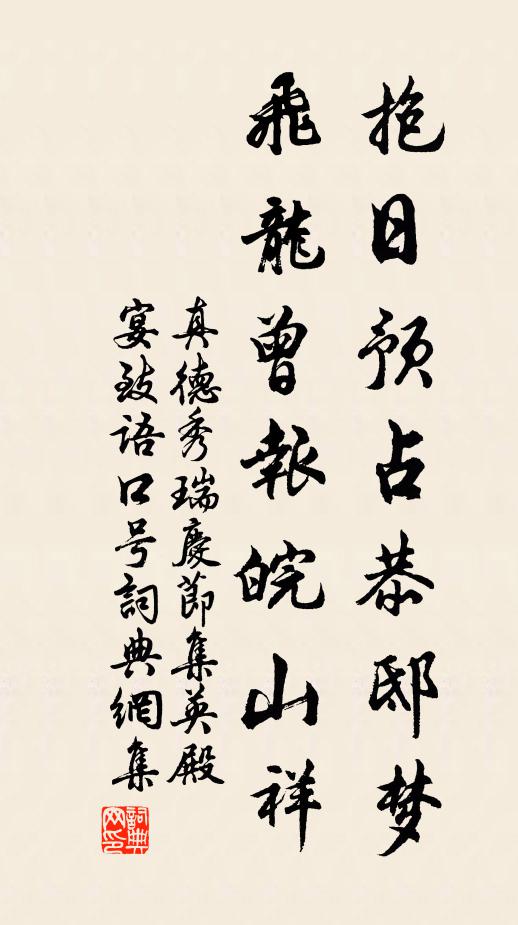 抱日预占恭邸梦
飛龍曾報皖山祥
真德秀瑞慶節集英殿
宴致语口号詞典網集
詞典網印